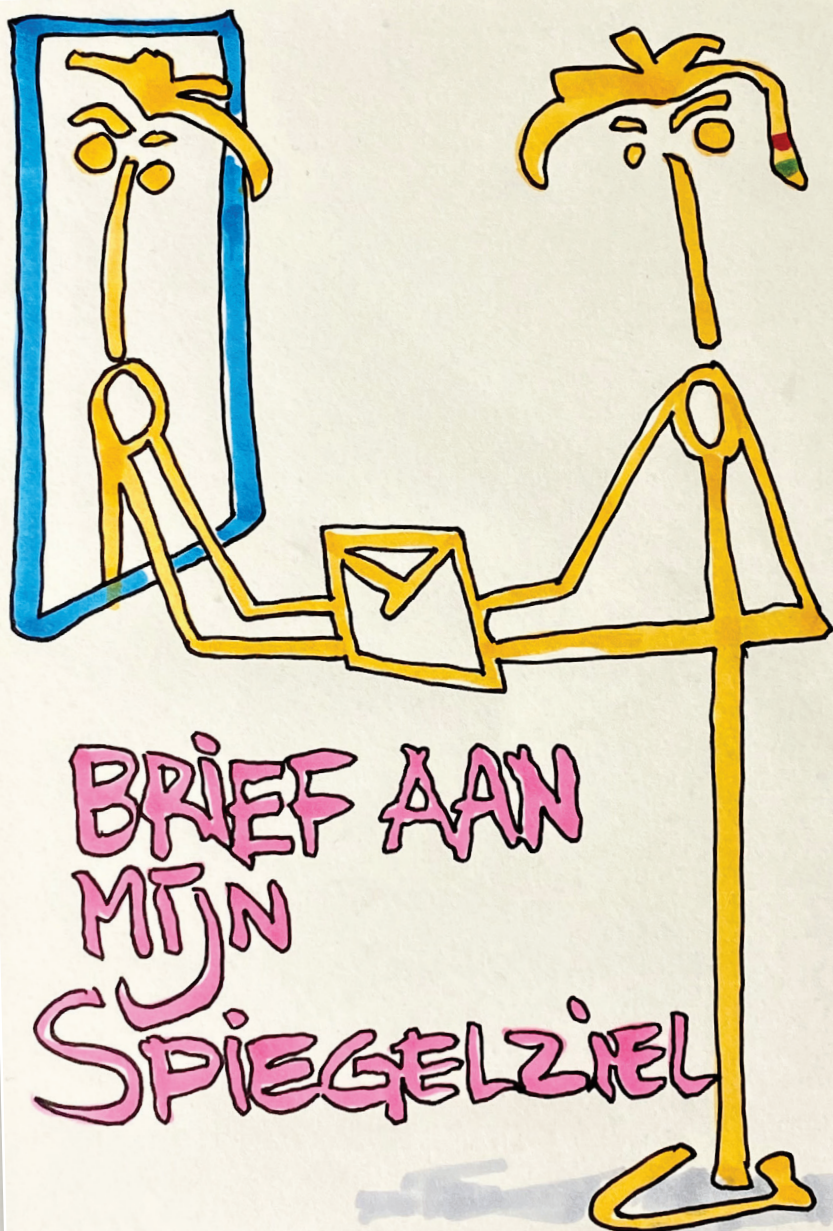 BRIEF AAN
MIJN
SPIEGELZIEL